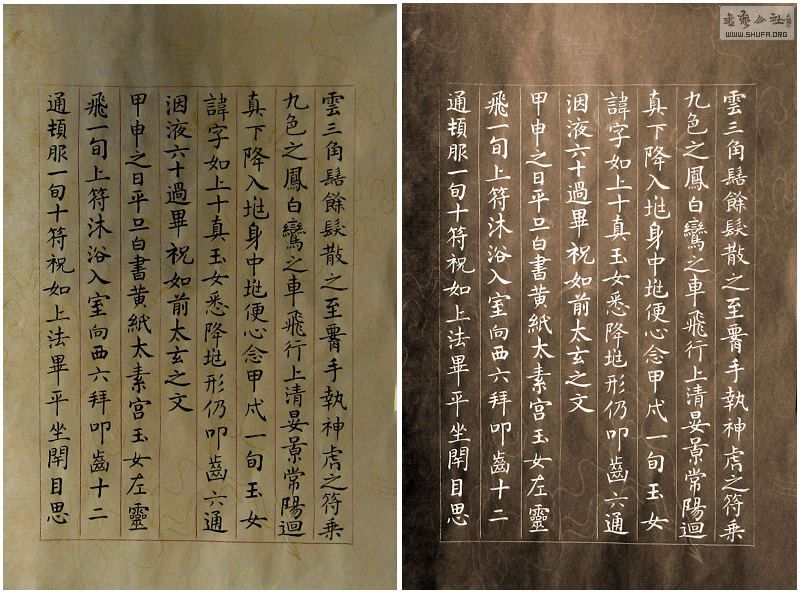 雲三角髻餘髮散之至腰手執神虎之符乘
九色之鳳白鸞之車飛行上清晏景常陽迴
真下降入兆身中兆便心念甲戌一旬玉女
諱字如上十真玉女悉降兆形仍叩齒六通
咽液六十過畢祝如前太玄之文
甲申之日平旦白書黃紙太素宮玉女左靈
飛一旬上符沐浴入室向西六拜叩齒十二
通頓服一旬十符祝如上法畢平坐閉目思
書藝公社
WWW.SHUFA.ORG
雲三角髻餘髮散之至腰手執神虎之符乘
九色之鳳白鸞之車飛行上清晏景常陽迴
真下降入兆身中兆便心念甲戌一旬玉女
諱字如上十真玉女悉降兆形仍叩齒六通
咽液六十過畢祝如前太玄之文
甲申之日平旦白書黃紙太素宮玉女左靈
飛一旬上符沐浴入室向西六拜叩齒十二
通頓服一旬十符祝如上法畢平坐閉目思